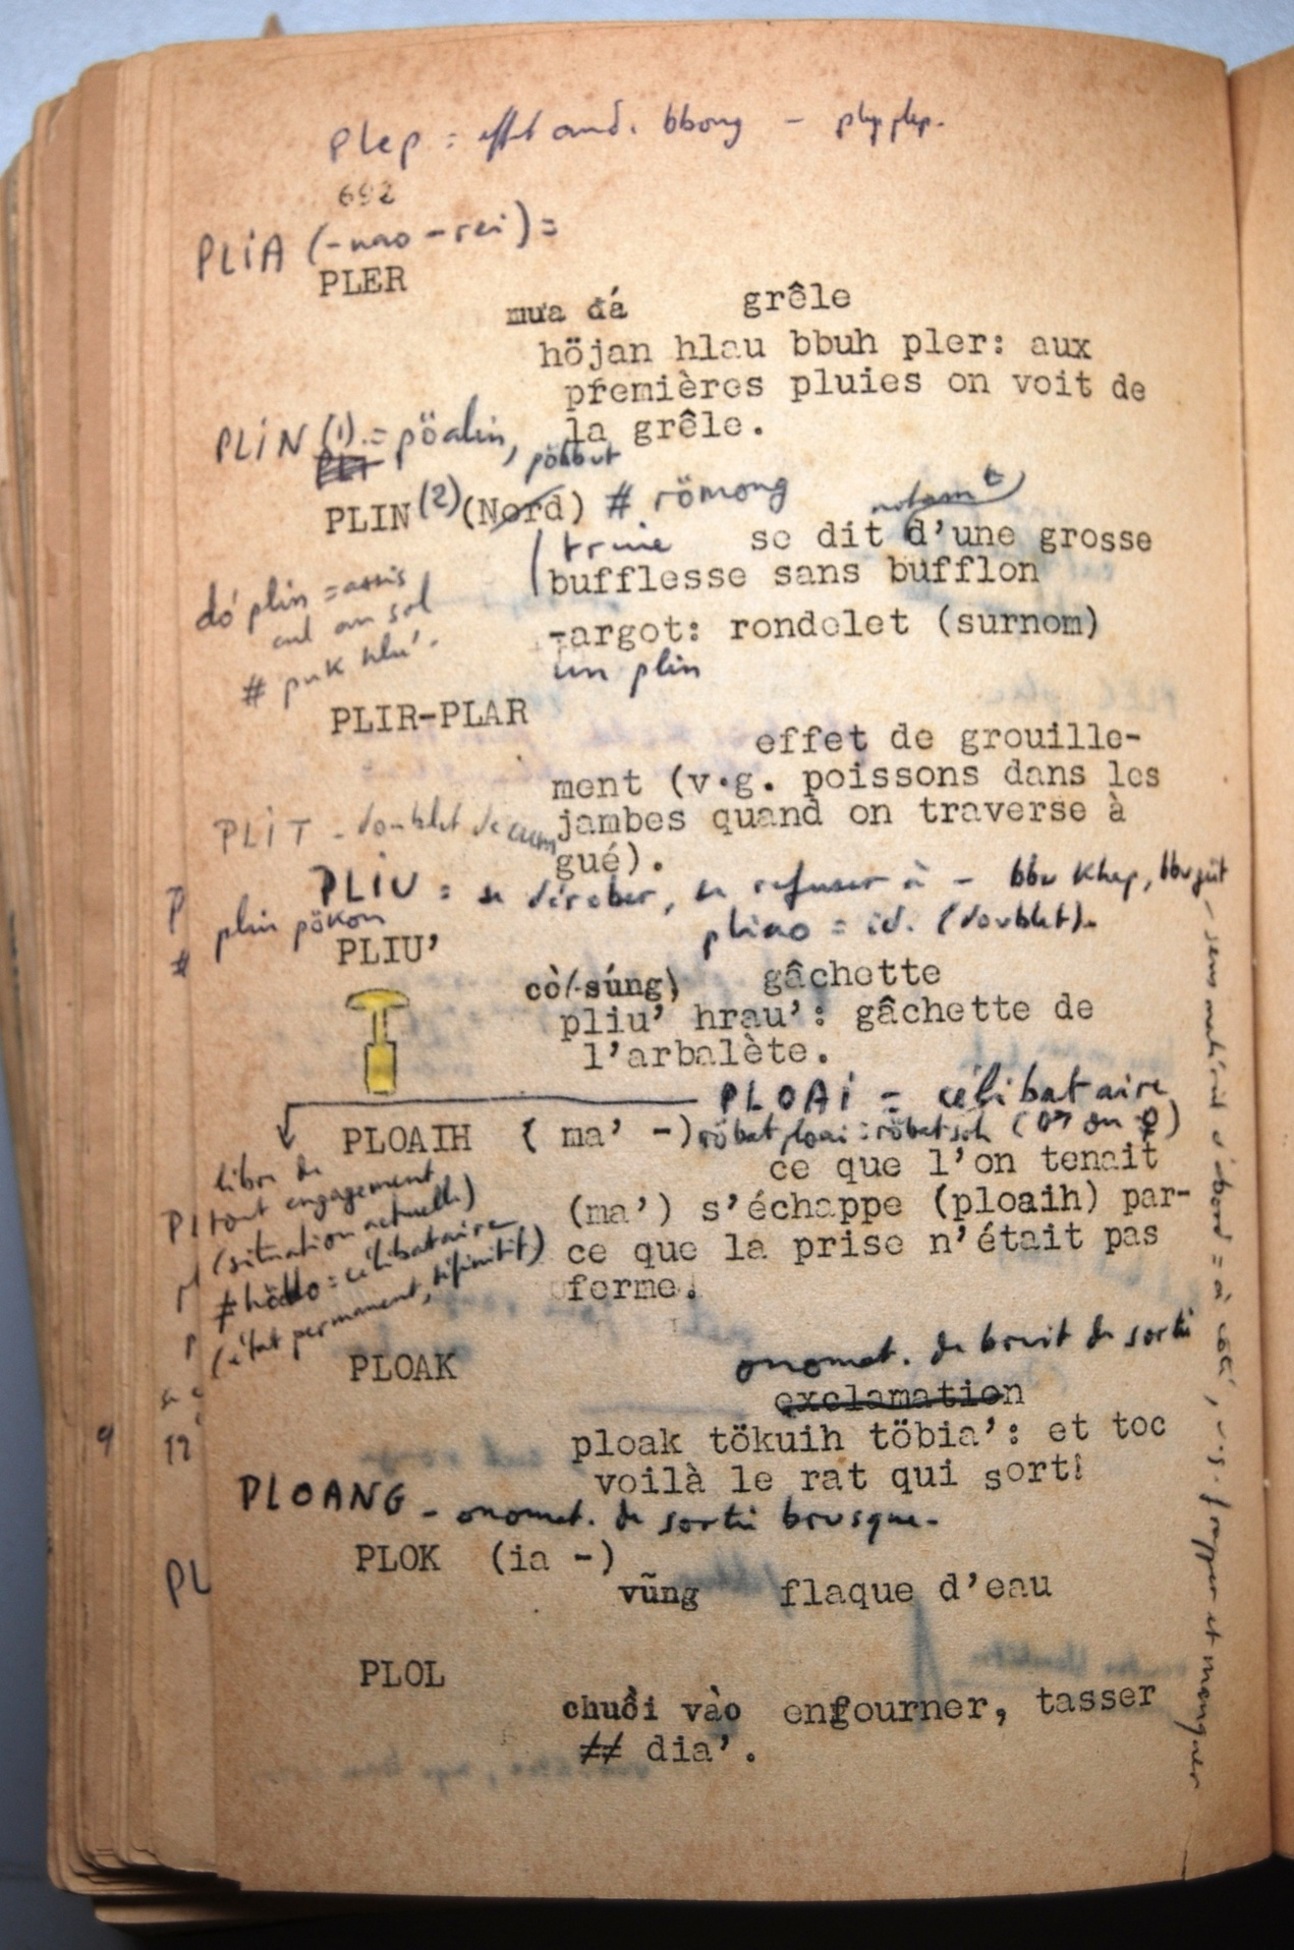 Plep = effet aud. bbong - plep plep.
692
PLIA (-nao -rei) =
PLER
mưa đá grêle
höjan hlau bbuh pler: aux
premières pluies on voit de
la grêle.
PLIN (1) = pöalin, pöbbut
PLIN (2) (Nord) # römong
notamt
truie se dit d'une grosse
bufflesse sans bufflon
dó' plin = assis
cul au sol
# puk hlu'.
-argot: rondelet (surnom)
un plin
PLIR-PLAR
effet de grouille-
ment (v.g. poissons dans les
jambes quand on traverse à
gué).
PLIT - doublet de
PLIU = se dérober, se refuser à - bbu khap, bbu güt
plin pökon
pliao = id. (doublet).
PLIU'
cò(-súng) gâchette
pliu' hrau': gâchette de
l'arbalète.
PLOAI = célibataire
PLOAIH ( ma' -) röbat ploai : röbat soh (♂ ou ♀)
libre de
tout engagement
(situation actuelle)
# höddo = célibataire
(état permanent, définitif)
ce que l'on tenait
(ma') s'échappe (ploaih) par-
ce que la prise n'était pas
ferme.
PLOAK
onomat. de bruit de sortie
exclamation
ploak tökuih töbia': et toc
voilà le rat qui sort!
PLOANG - onomat. de sortie brusque.
PLOK (ia -)
vũng flaque d'eau
PLOL
chuồi vào enfourner, tasser
## dia'.
- sens matériel d'abord = à côté, v.g. frapper et manquer
P
#
PL
9
12
PL